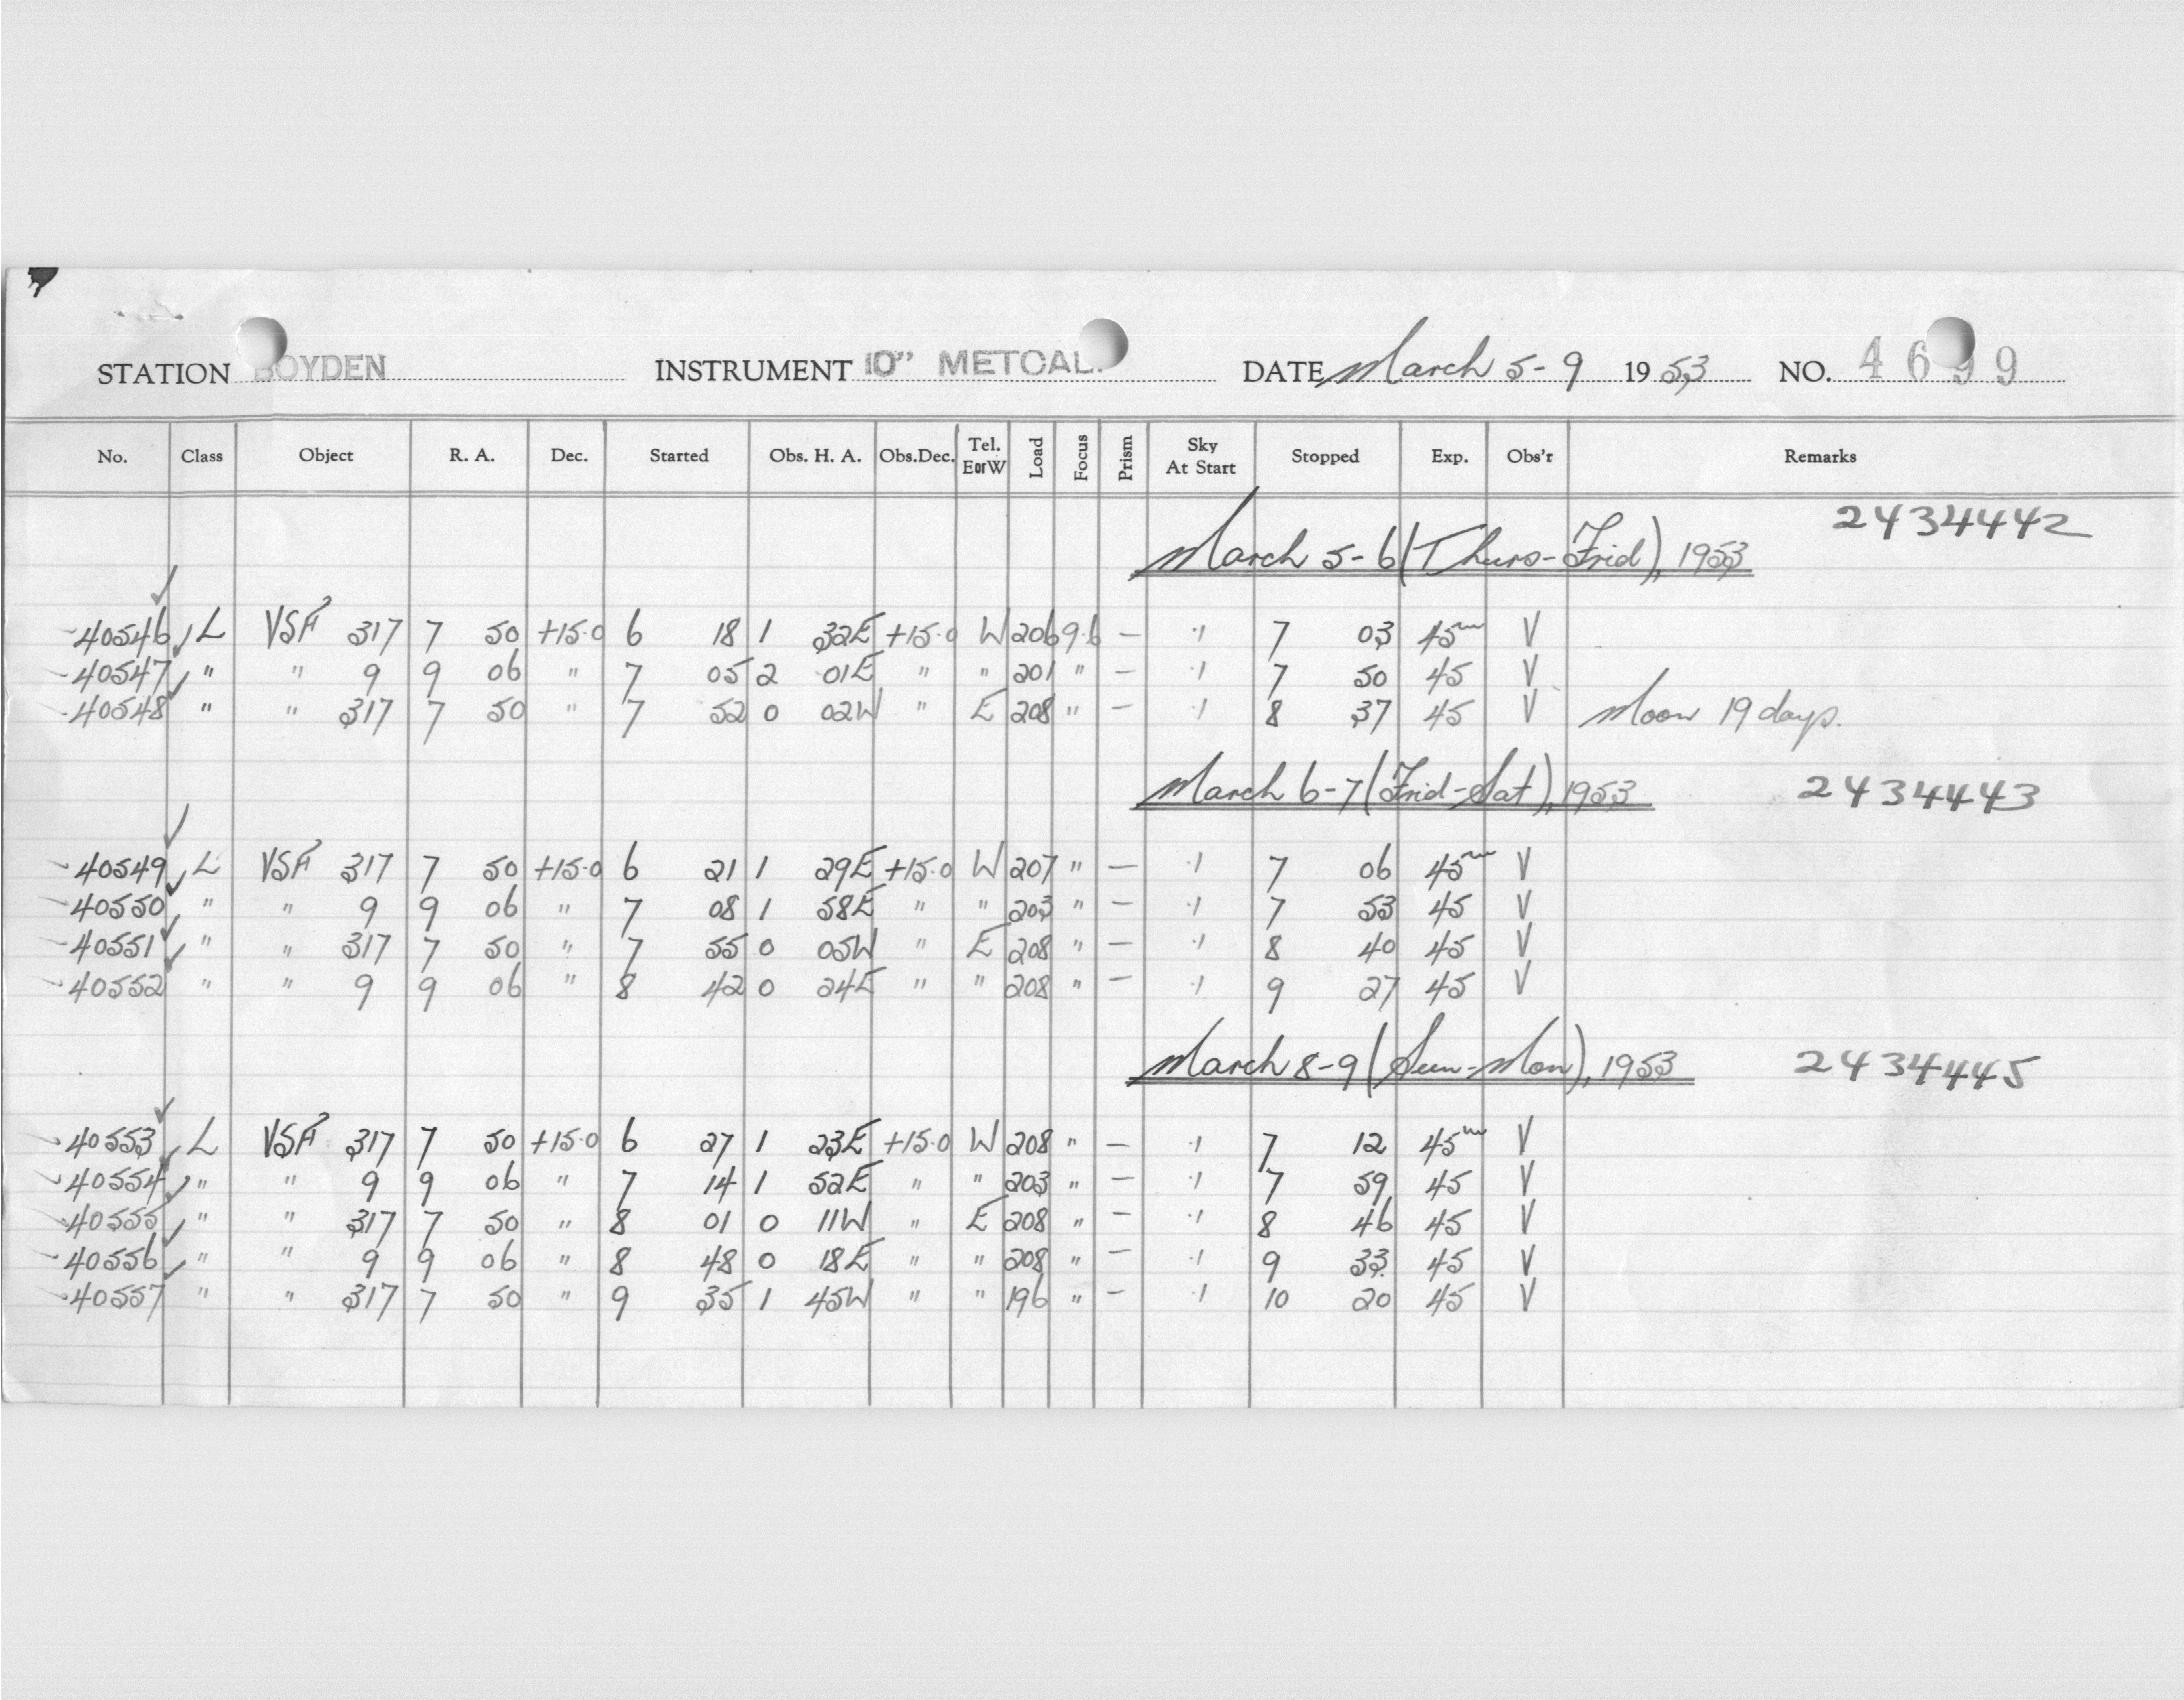 STATION BOYDEN INSTRUMENT 10" METCAL. DATE March 5-9 1953 NO. 4699
No. Class Object R. A. Dec. Started Obs. H. A. Obs.Dec. Tel. EorW Load Focus Prism Sky At Start Stopped Exp. Obs'r Remarks
March 5-6 (Thurs-Frid), 1953 2434442
40546 L VSF 317 7 50 +15.0 6 18 1 32E +15.0 W 206 9.6 — .1 7 03 45m V
40547 " " 9 9 06 " 7 05 2 01E " " 201 " — .1 7 50 45 V
40548 " " 317 7 50 " 7 52 0 02W " E 208 " — .1 8 37 45 V Moon 19 days.
March 6-7 (Frid-Sat), 1953 2434443
40549 L VSF 317 7 50 +15.0 6 21 1 29E +15.0 W 207 " — .1 7 06 45m V
40550 " " 9 9 06 " 7 08 1 58E " " 203 " — .1 7 53 45 V
40551 " " 317 7 50 " 7 55 0 05W " E 208 " — .1 8 40 45 V
40552 " " 9 9 06 " 8 42 0 24E " " 208 " — .1 9 27 45 V
March 8-9 (Sun-Mon), 1953 2434445
40553 L VSF 317 7 50 +15.0 6 27 1 23E +15.0 W 208 " — .1 7 12 45m V
40554 " " 9 9 06 " 7 14 1 52E " " 203 " — .1 7 59 45 V
40555 " " 317 7 50 " 8 01 0 11W " E 208 " — .1 8 46 45 V
40556 " " 9 9 06 " 8 48 0 18E " " 208 " — .1 9 33 45 V
40557 " " 317 7 50 " 9 35 1 45W " " 196 " — .1 10 20 45 V